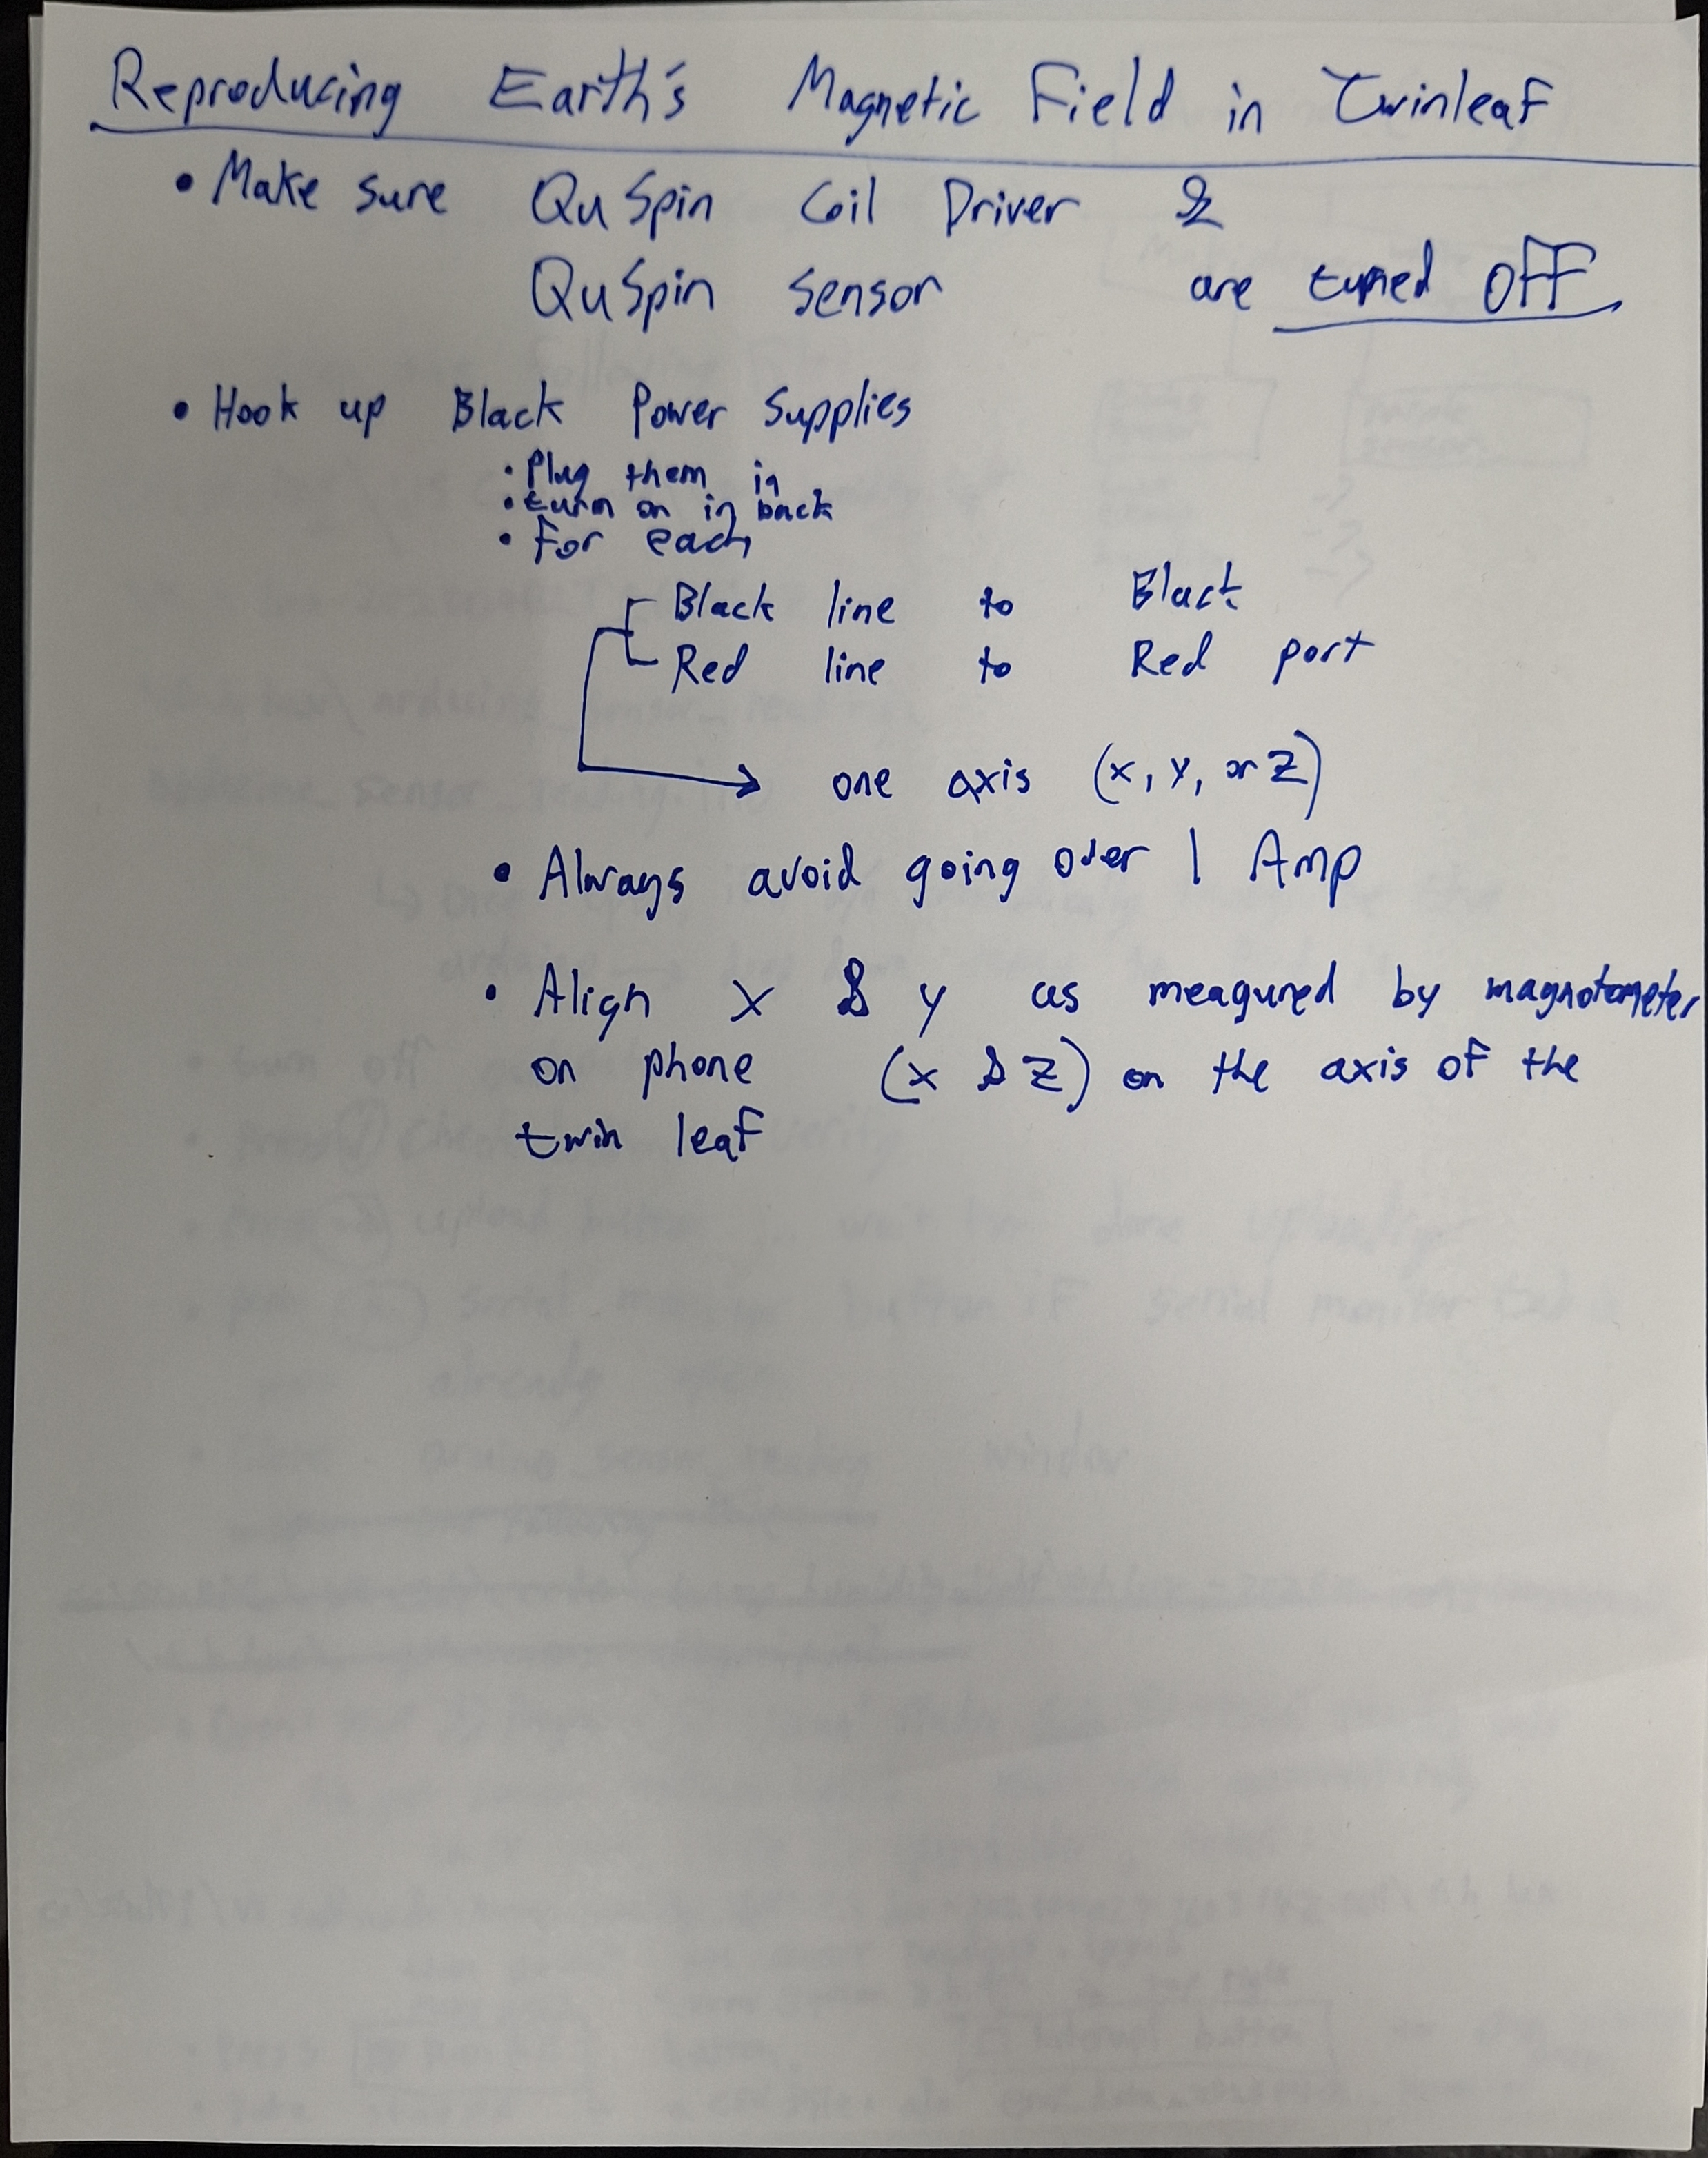 Reproducing Earth's Magnetic Field in Twinleaf
• Make sure QuSpin Coil Driver &
QuSpin sensor are turned off
• Hook up Black Power Supplies
• Plug them in
• turn on in back
• For each
Black line to Black
Red line to Red port
one axis (x, y, or z)
• Always avoid going over 1 Amp
• Align x & y as measured by magnotometer
on phone (x & z) on the axis of the
twin leaf